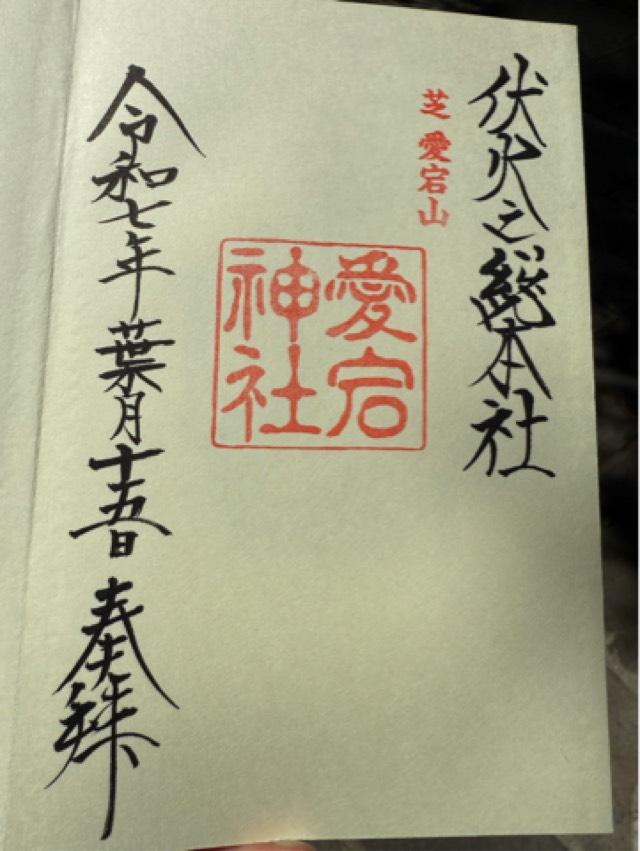 伏火之総本社
芝 愛宕山
愛宕
神社
令和七年葉月十五日 奉拝